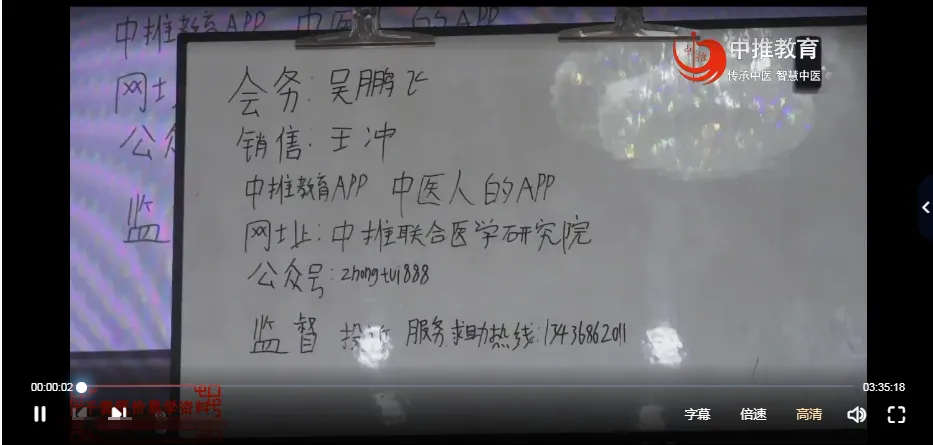 中推教育APP 中医人的APP
网址
公众
监
中推教育
传承中医 智慧中医
会务:吴鹏飞
销信:王冲
中推教育APP 中医人的APP
网址:中推联合医学研究院
公众号:zhongtui888
监督 投诉 服务求助热线:13436862011
00:00:02
03:35:18
字幕 倍速 高清